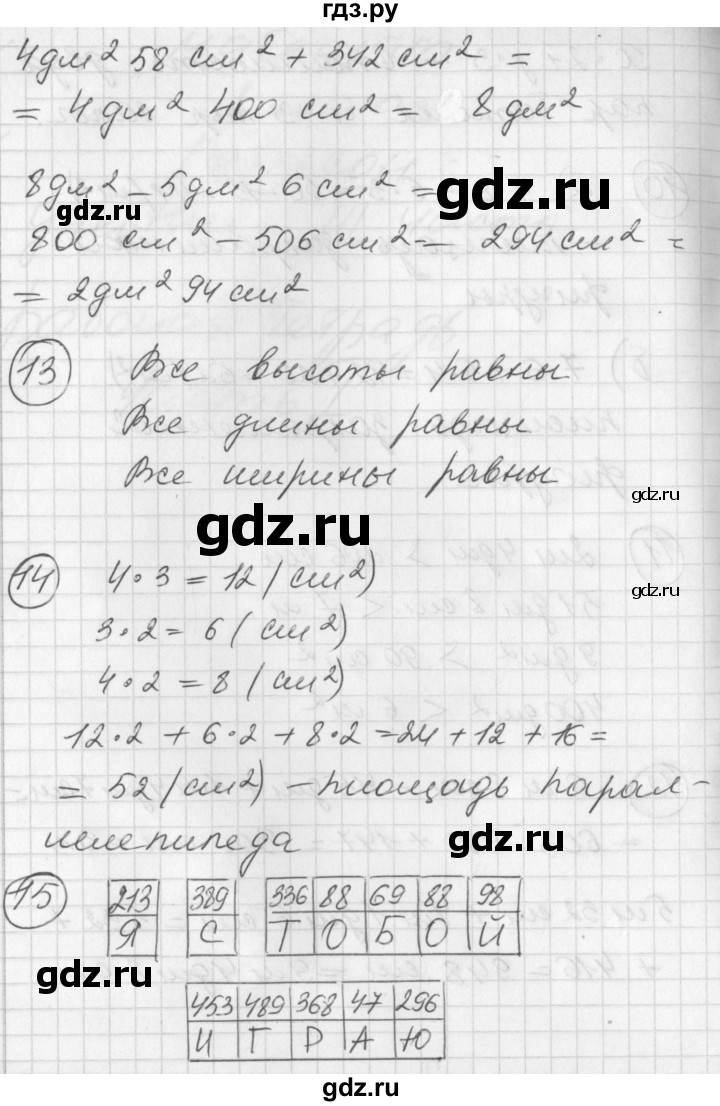 гдз.ру
4дм² 58 см² + 342 см² =
= 4 дм² 400 см² = 8 дм²
8дм² – 5дм² 6 см² =
gdz.ru
gdz.ru
800 см² – 506 см² – 294 см² =
= 2дм² 94 см²
13 Все высоты равны
Все длины равны
Все ширины равны
gdz.ru
gdz.ru
14 4 · 3 = 12 (см²)
gdz.ru
3 · 2 = 6 (см²)
4 · 2 = 8 (см²)
12·2 + 6·2 + 8·2 = 24 + 12 + 16 =
= 52 (см²) – площадь парал-
лелепипеда
gdz.ru
gdz.ru
15 213 389 336 88 69 88 98
Я С Т О Б О Й
453 489 368 47 296
И Г Р А Ю
gdz.ru
gdz.ru
gdz.ru